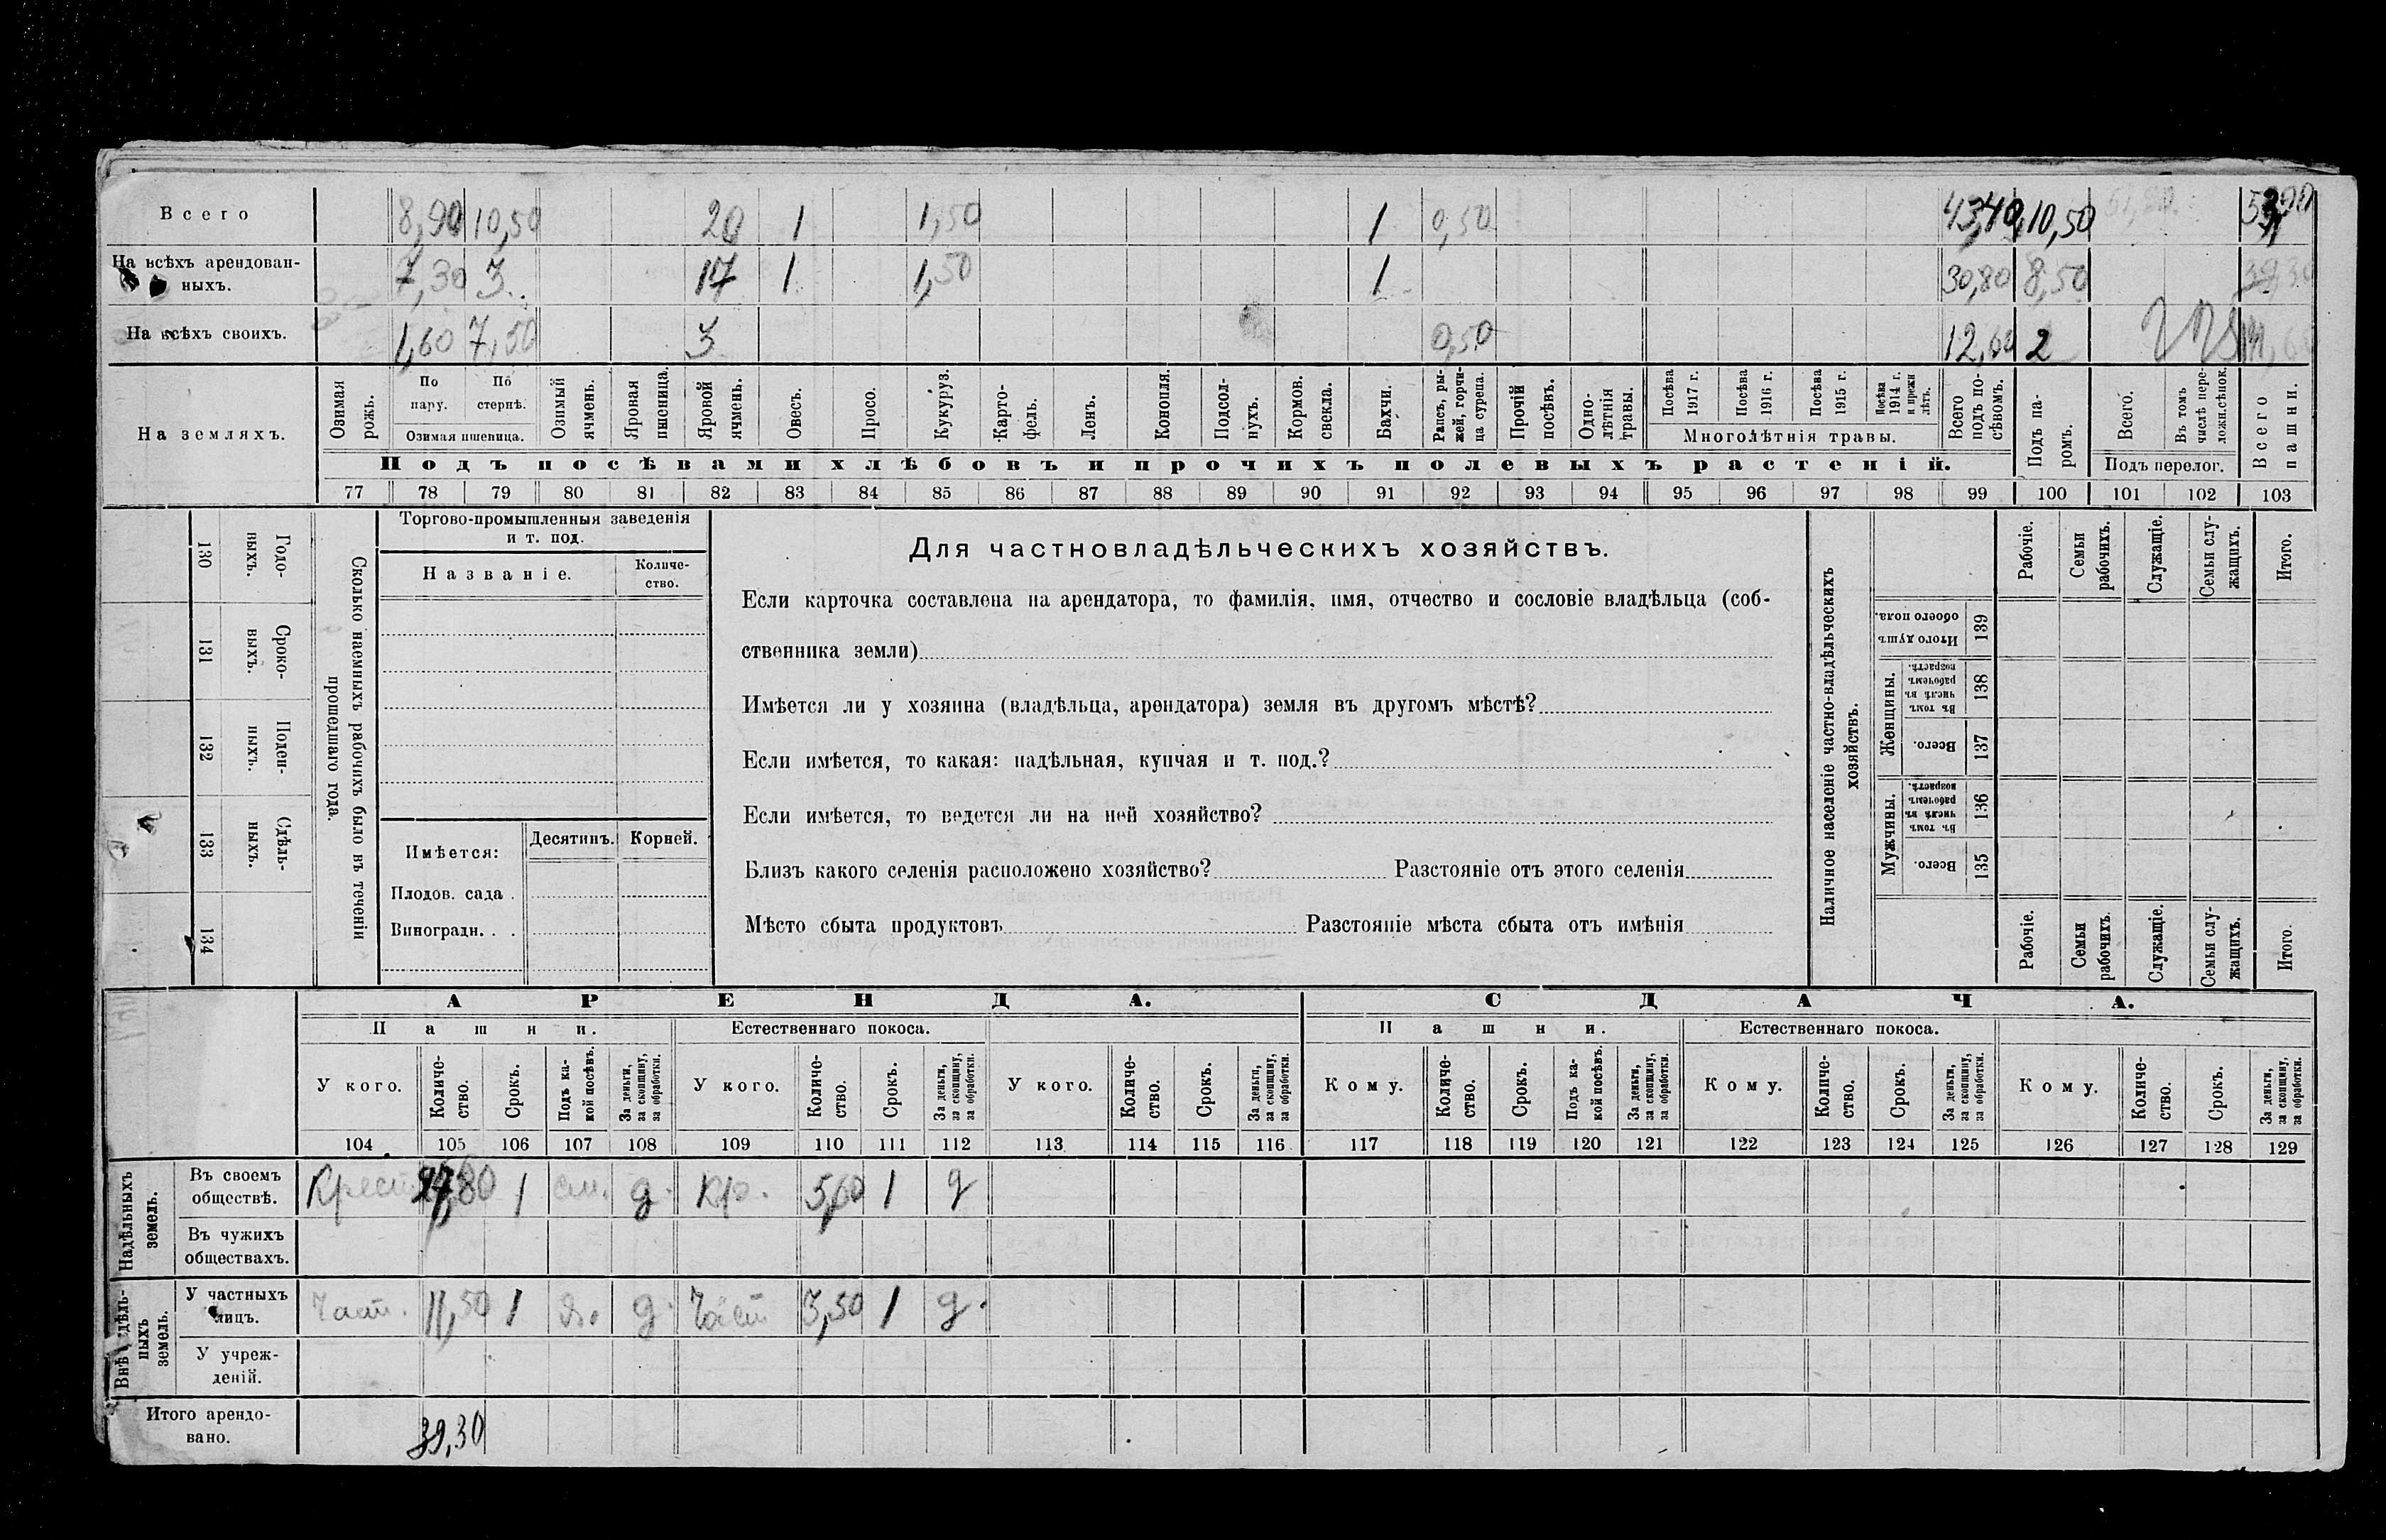 Всего 8,90 10,50 20 1 1,50 1 0,50 43,40 10,50
На всѣхъ арендован-
ныхъ. 7,30 3 17 1 1,50 1 30,80 8,50
На всѣхъ своихъ. 1,60 7,50 3 0,50 12,60 2
На земляхъ.
Озимая рожь.
По пару.
По стернѣ.
Озимая пшеница.
Озимый ячмень.
Яровая пшеница.
Яровой ячмень.
Овесъ.
Просо.
Кукуруз.
Карто-
фель.
Ленъ.
Конопля.
Подсол-
нухъ.
Кормов.
свекла.
Бахчи.
Рапсъ, ры-
жей, горчи-
ца сурепа.
Прочій
посѣвъ.
Одно-
лѣтнія
травы.
Посѣва
1917 г.
Посѣва
1916 г.
Посѣва
1915 г.
Посѣва
1914 г.
и прежн
лѣтъ.
Многолѣтнія травы.
Всего
подъ по-
сѣвомъ.
Подъ па-
ромъ.
Всего.
Въ томъ
числѣ пере-
ложн.сѣнок.
Подъ перелог.
Всего
пашни.
Подъ посѣвами хлѣбовъ и прочихъ полевыхъ растеній.
77 78 79 80 81 82 83 84 85 86 87 88 89 90 91 92 93 94 95 96 97 98 99 100 101 102 103
130 Годо-
ныхъ.
131 Сроко-
выхъ.
132 Поден-
ныхъ.
133 Сдѣль-
ныхъ.
134
Сколько наемныхъ рабочихъ было въ теченіи
прошедшаго года.
Торгово-промышленныя заведенія
и т. под.
Названіе.
Количе-
ство.
Имѣется:
Десятинъ.
Корней.
Плодов. сада .
Виноградн. . .
Для частновладѣльческихъ хозяйствъ.
Если карточка составлена на арендатора, то фамилія, имя, отчество и сословіе владѣльца (соб-
ственника земли)
Имѣется ли у хозяина (владѣльца, арендатора) земля въ другомъ мѣстѣ?
Если имѣется, то какая: надѣльная, купчая и т. под.?
Если имѣется, то ведется ли на ней хозяйство?
Близъ какого селенія расположено хозяйство? Разстояніе отъ этого селенія
Мѣсто сбыта продуктовъ Разстояніе мѣста сбыта отъ имѣнія
Наличное населеніе частно-владѣльческихъ
хозяйствъ.
Рабочіе.
Семьи
рабочихъ.
Служащіе.
Семьи слу-
жащихъ.
Итого.
Итого душъ
обоего пола.
139
Женщины.
Въ томъ
числѣ въ
рабочемъ
возрастѣ.
138
Всего.
137
Мужчины.
Въ томъ
числѣ въ
рабочемъ
возрастѣ.
136
Всего.
135
Рабочіе.
Семьи
рабочихъ.
Служащіе.
Семьи слу-
жащихъ.
Итого.
АРЕНДА. СДАЧА.
Пашни. Естественнаго покоса. Пашни. Естественнаго покоса.
У кого.
Количе-
ство.
Срокъ.
Подъ ка-
кой посѣвъ.
За деньги,
за скопщину,
за обработки.
У кого.
Количе-
ство.
Срокъ.
За деньги,
за скопщину,
за обработки.
У кого.
Количе-
ство.
Срокъ.
За деньги,
за скопщину,
за обработки.
Кому.
Количе-
ство.
Срокъ.
Подъ ка-
кой посѣвъ.
За деньги,
за скопщину,
за обработки.
Кому.
Количе-
ство.
Срокъ.
За деньги,
за скопщину,
за обработки.
Кому.
Количе-
ство.
Срокъ.
За деньги,
за скопщину,
за обработки.
104 105 106 107 108 109 110 111 112 113 114 115 116 117 118 119 120 121 122 123 124 125 126 127 128 129
Надѣльныхъ
земель.
Въ своемъ
обществѣ. Крест 1 д. Кр. 5,60 1 д
Въ чужихъ
обществахъ.
земель.
У частныхъ
лицъ. Част. 11,50 1 д. Част 3,50 1 д.
У учреж-
деній.
Итого арендо-
вано. 39,30